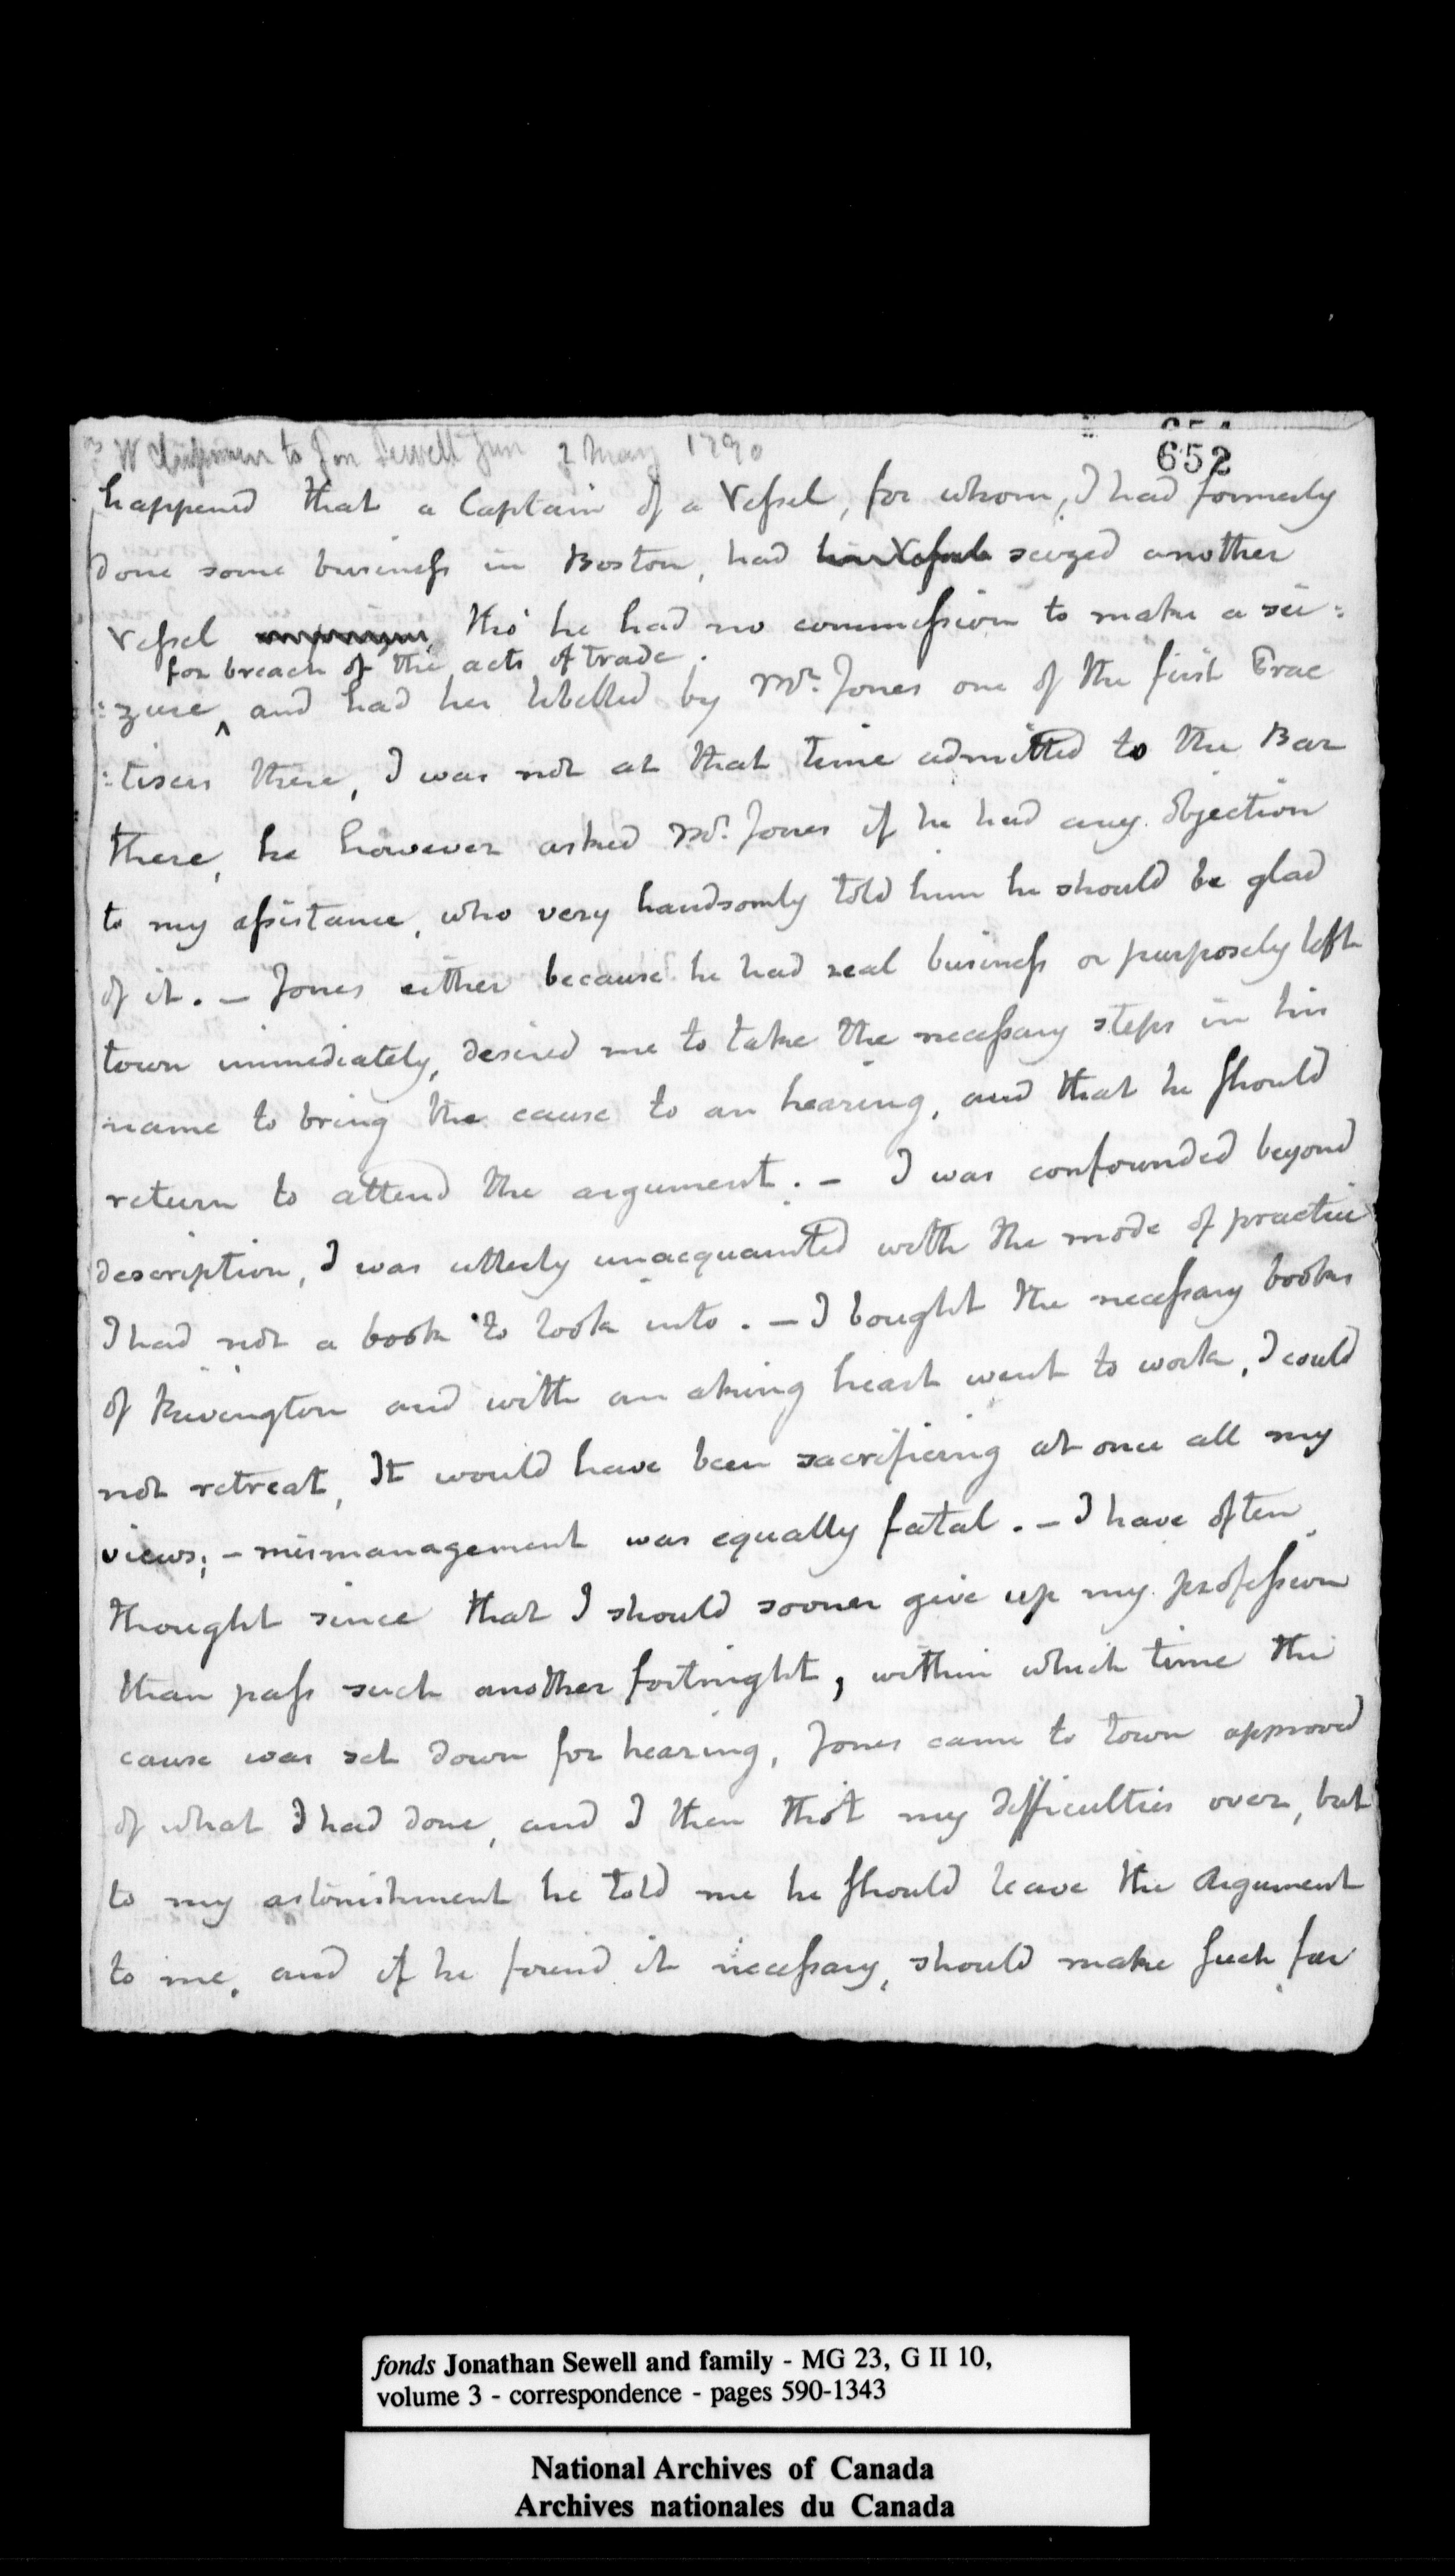 W Chipman to Jon Sewell Jun 2 May 1790
652
happened that a Captain of a Vessel, for whom, I had formerly
done some business in Boston, had his Vessel seized another
Vessel tho' he had no commission to make a sei=
for breach of the acts of trade.
=zure ^ and had her libelled by Mr. Jones one of the first Prac
=tisers there, I was not at that time admitted to the Bar
there, he however asked Mr. Jones if he had any objection
to my assistance, who very handsomly told him he should be glad
of it. - Jones either because he had real business or purposely left
town immediately, desired me to take the necessary steps in his
name to bring the cause to an hearing, and that he should
return to attend the argument. - I was confounded beyond
description, I was utterly unacquainted with the mode of practice
I had not a book to look into. - I bought the necessary books
of Rivington and with an aking heart went to work, I could
not retreat, It would have been sacrificing at once all my
views; - mismanagement was equally fatal. - I have often
thought since that I should sooner give up my profession
than pass such another fortnight, within which time the
cause was set down for hearing, Jones came to town approved
of what I had done, and I then tho't my difficulties over, but
to my astonishment he told me he should leave the Argument
to me, and if he found it necessary, should make such far
fonds Jonathan Sewell and family - MG 23, G II 10,
volume 3 - correspondence - pages 590-1343
National Archives of Canada
Archives nationales du Canada